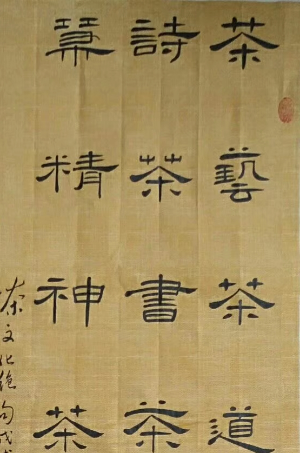 茶藝茶道
詩茶書茶
精神茶
茶文化絶句戊